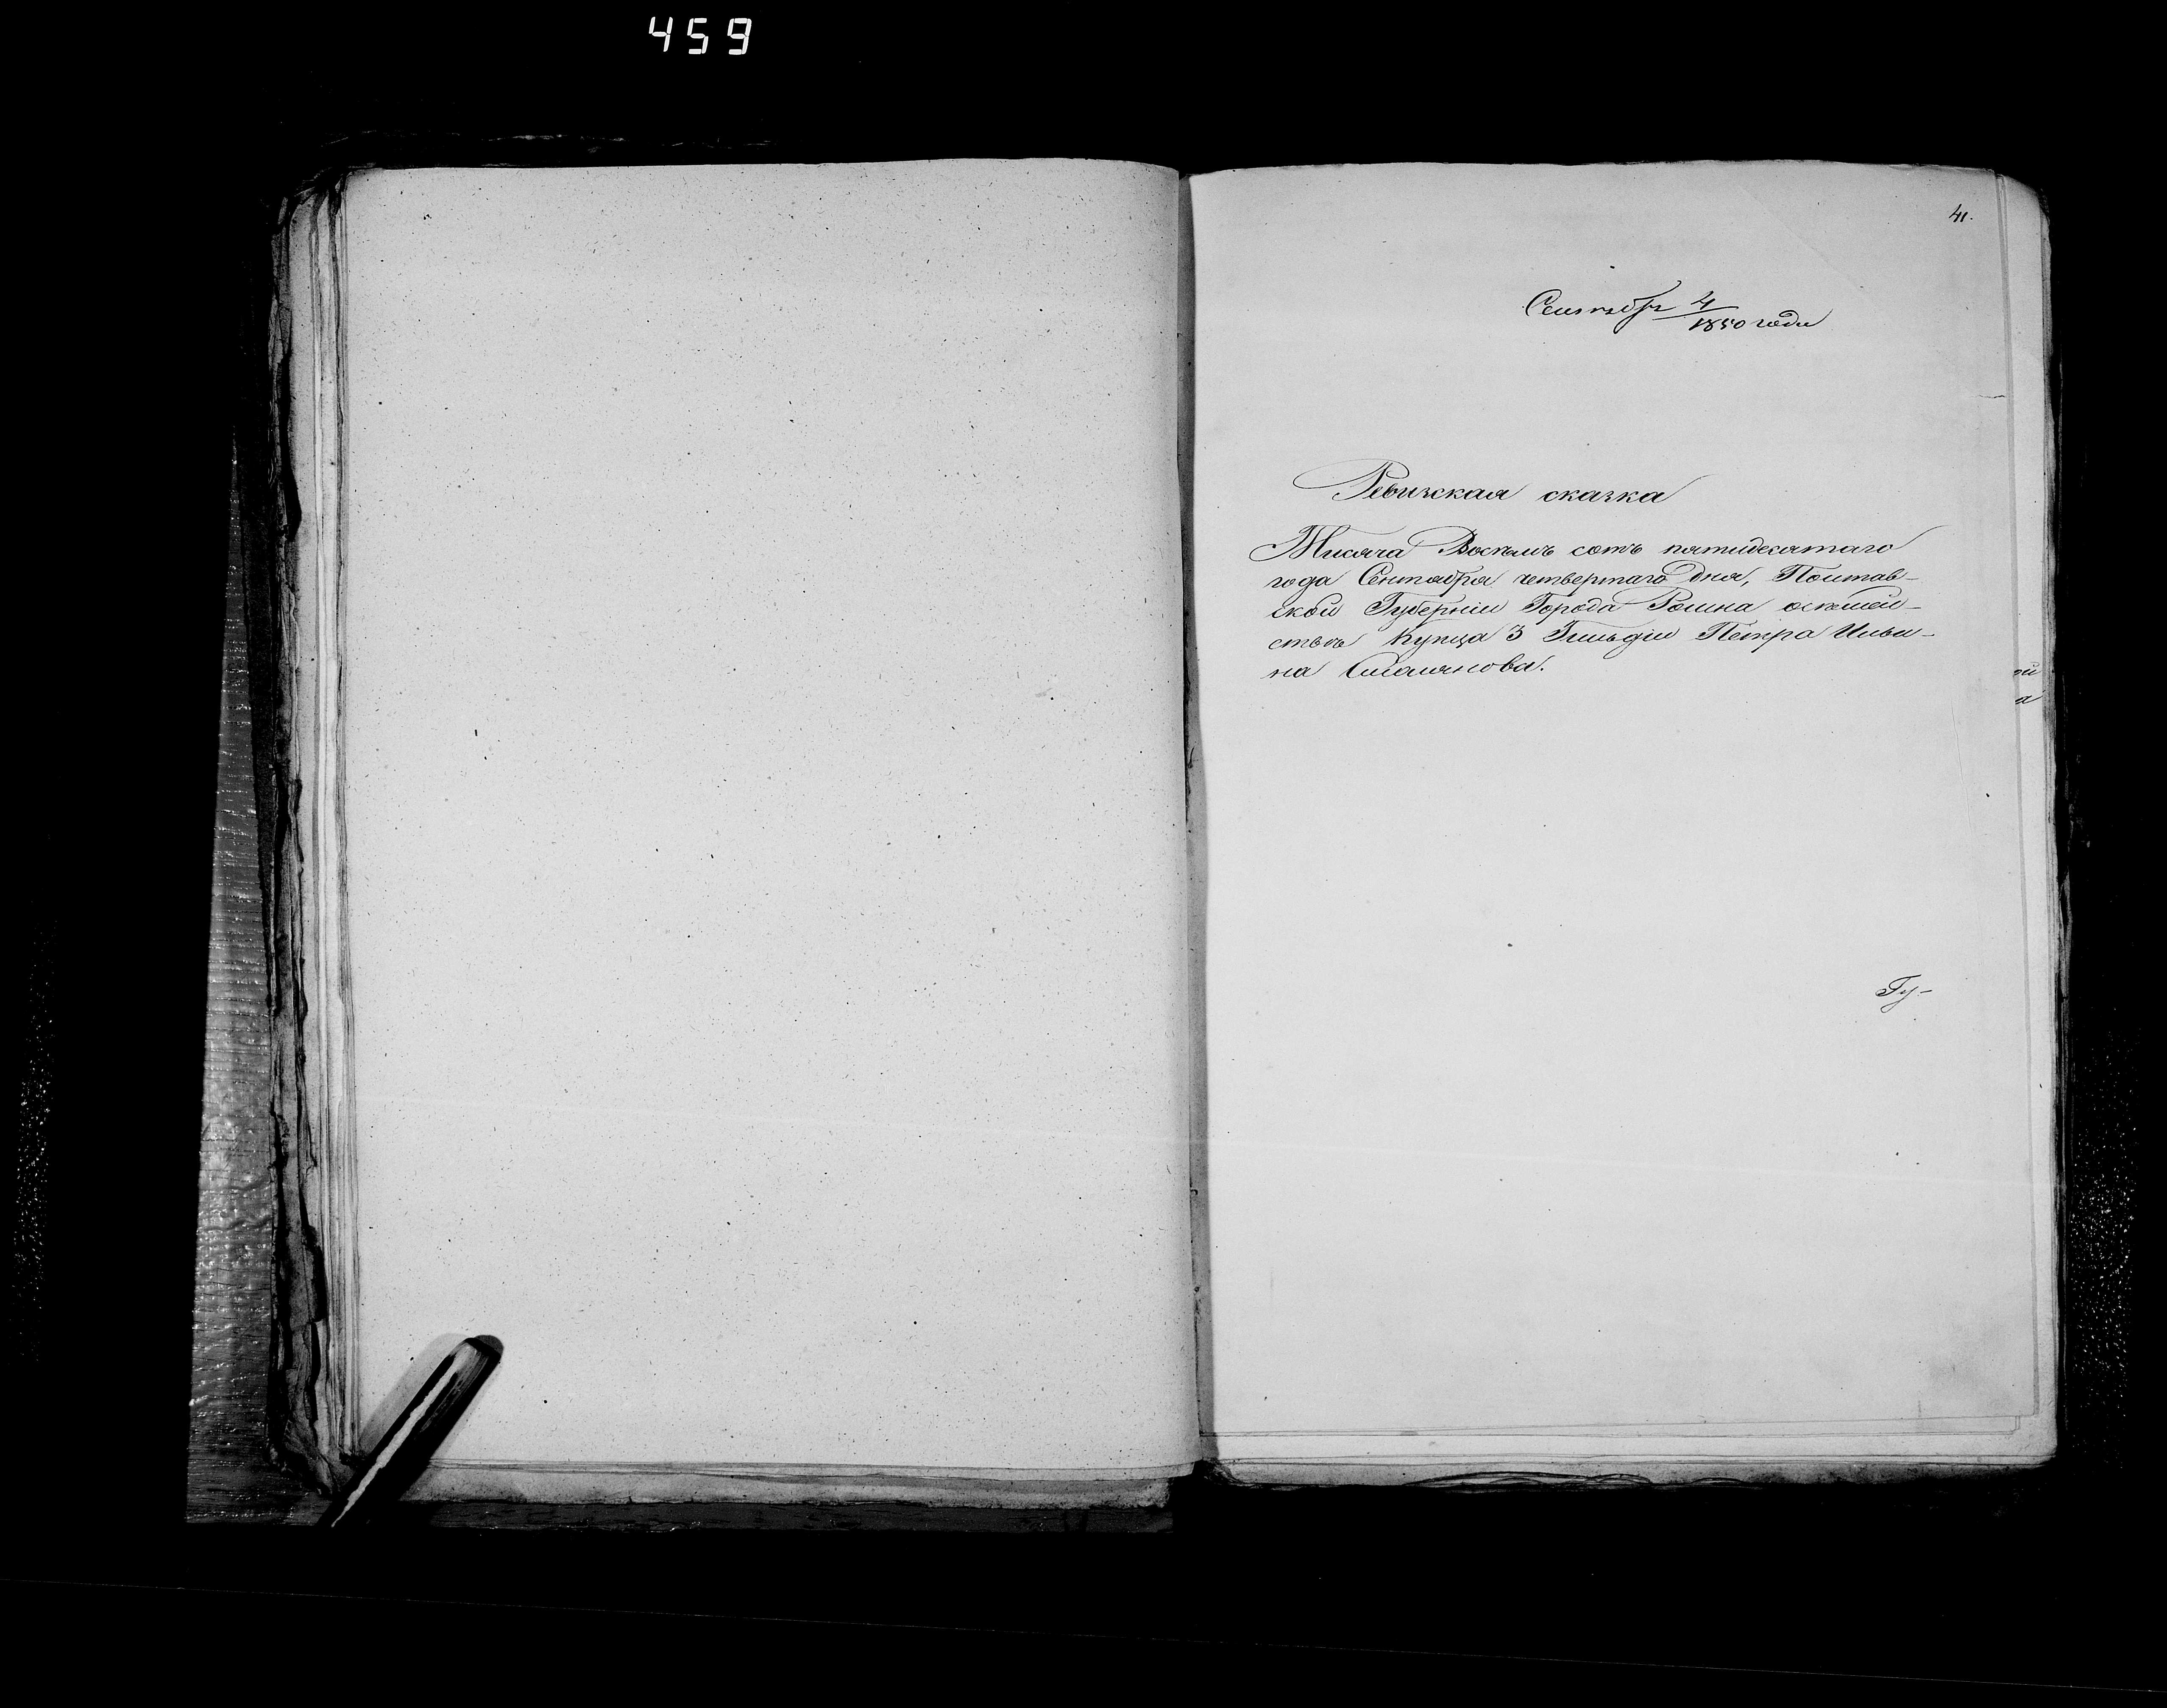 459
41.
Сентябрь 4/1850 года
Ревизская сказка
Тысяча Восемь сотъ пятидесятаго
года Сентября четвертаго дня, Полтав-
ской Губерніи Города Ромна о семей-
ствѣ Купца 3 Гильдіи Петра Ильи-
на
ой
а
Гу-